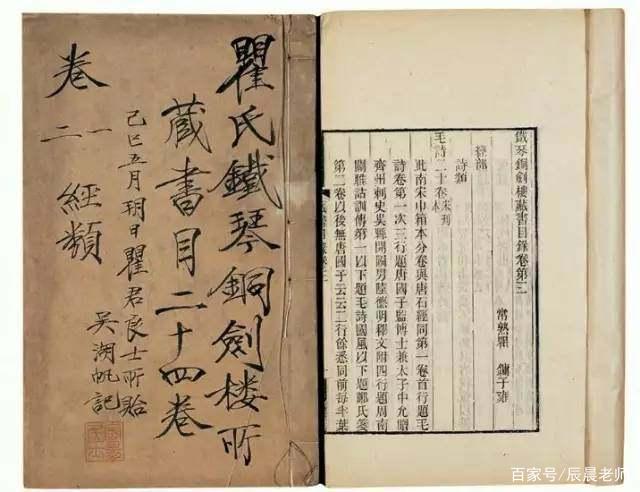 瞿氏鐵琴銅劍樓所
藏書目二十四卷
卷
一 二
經類
己巳五月朔日瞿君良士所貽
吳湖帆記
鐵琴銅劍樓藏書目錄卷第三
常熟瞿 鏞子雍
經部
詩類
毛詩二十卷宋刊本
此南宋巾箱本分卷與唐石經同第一卷首行題毛
詩卷第一次三行題唐國子監博士兼太子中允贈
齊州刺史吳縣開國男陸德明釋文附四行題周南
關雎詁訓傳第一以下題毛詩國風以下題鄭氏箋
第二卷以後無唐國子云云二行餘悉同前每半葉
百家号/辰晨老师